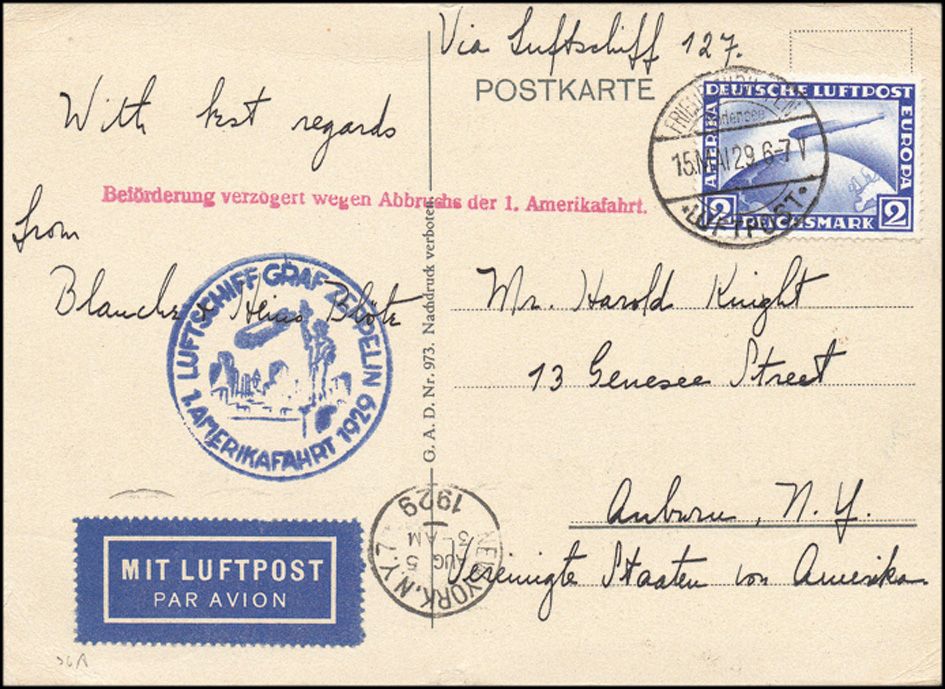 Via Luftschiff 127.
POSTKARTE
With best regards
from
Blanche & Heins Blöte
Beförderung verzögert wegen Abbruchs der 1. Amerikafahrt.
LUFTSCHIFF GRAF ZEPPELIN
1. AMERIKAFAHRT 1929
G. A. D. Nr. 973. Nachdruck verboten.
DEUTSCHE LUFTPOST
AMERIKA
EUROPA
2 REICHSMARK 2
15.MAI 29 6-7 V
*LUFTPOST*
Mr. Harold Knight
13 Genesee Street
Auburn, N.Y.
Vereinigte Staaten von Amerika
MIT LUFTPOST
PAR AVION
NEW YORK, N.Y. 7
AUG 5
3 AM
1929